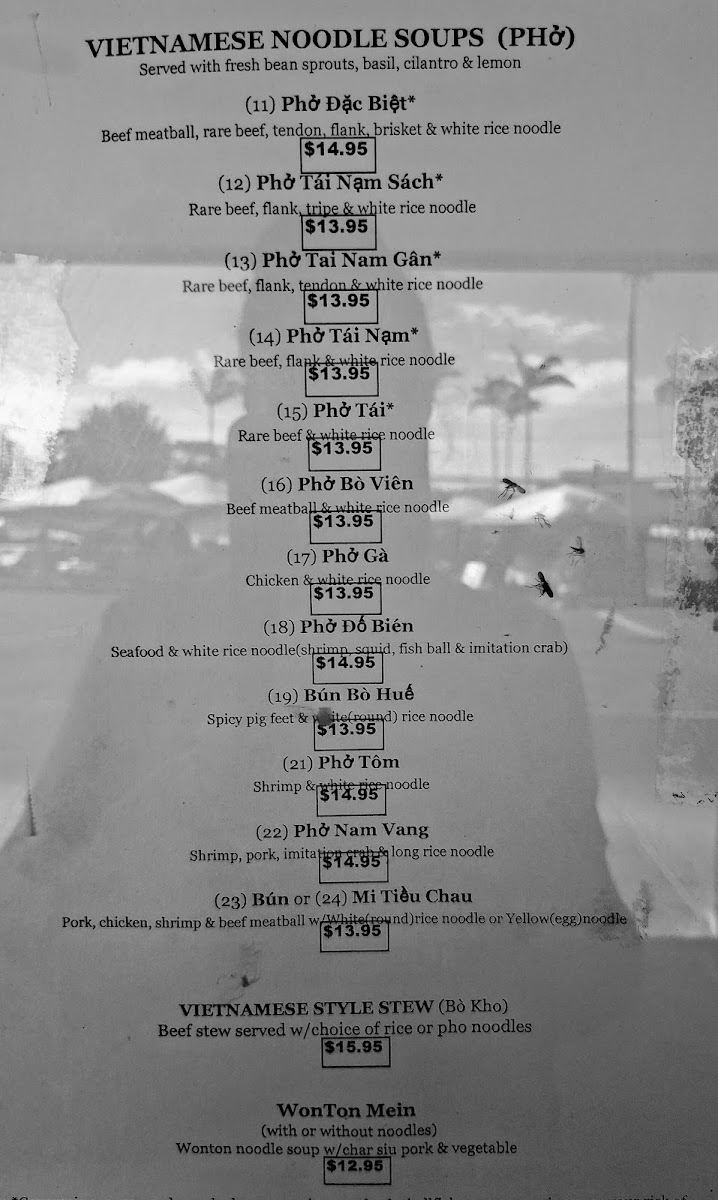 VIETNAMESE NOODLE SOUPS (PHở)
Served with fresh bean sprouts, basil, cilantro & lemon
(11) Phở Đặc Biệt*
Beef meatball, rare beef, tendon, flank, brisket & white rice noodle
$14.95
(12) Phở Tái Nạm Sách*
Rare beef, flank, tripe & white rice noodle
$13.95
(13) Phở Tai Nam Gân*
Rare beef, flank, tendon & white rice noodle
$13.95
(14) Phở Tái Nạm*
Rare beef, flank & white rice noodle
$13.95
(15) Phở Tái*
Rare beef & white rice noodle
$13.95
(16) Phở Bò Viên
Beef meatball & white rice noodle
$13.95
(17) Phở Gà
Chicken & white rice noodle
$13.95
(18) Phở Đố Bién
Seafood & white rice noodle(shrimp, squid, fish ball & imitation crab)
$14.95
(19) Bún Bò Huế
Spicy pig feet & white(round) rice noodle
$13.95
(21) Phở Tôm
Shrimp & white rice noodle
$14.95
(22) Phở Nam Vang
Shrimp, pork, imitation crab & long rice noodle
$14.95
(23) Bún or (24) Mi Tiều Chau
Pork, chicken, shrimp & beef meatball w/White(round)rice noodle or Yellow(egg)noodle
$13.95
VIETNAMESE STYLE STEW (Bò Kho)
Beef stew served w/choice of rice or pho noodles
$15.95
WonTon Mein
(with or without noodles)
Wonton noodle soup w/char siu pork & vegetable
$12.95